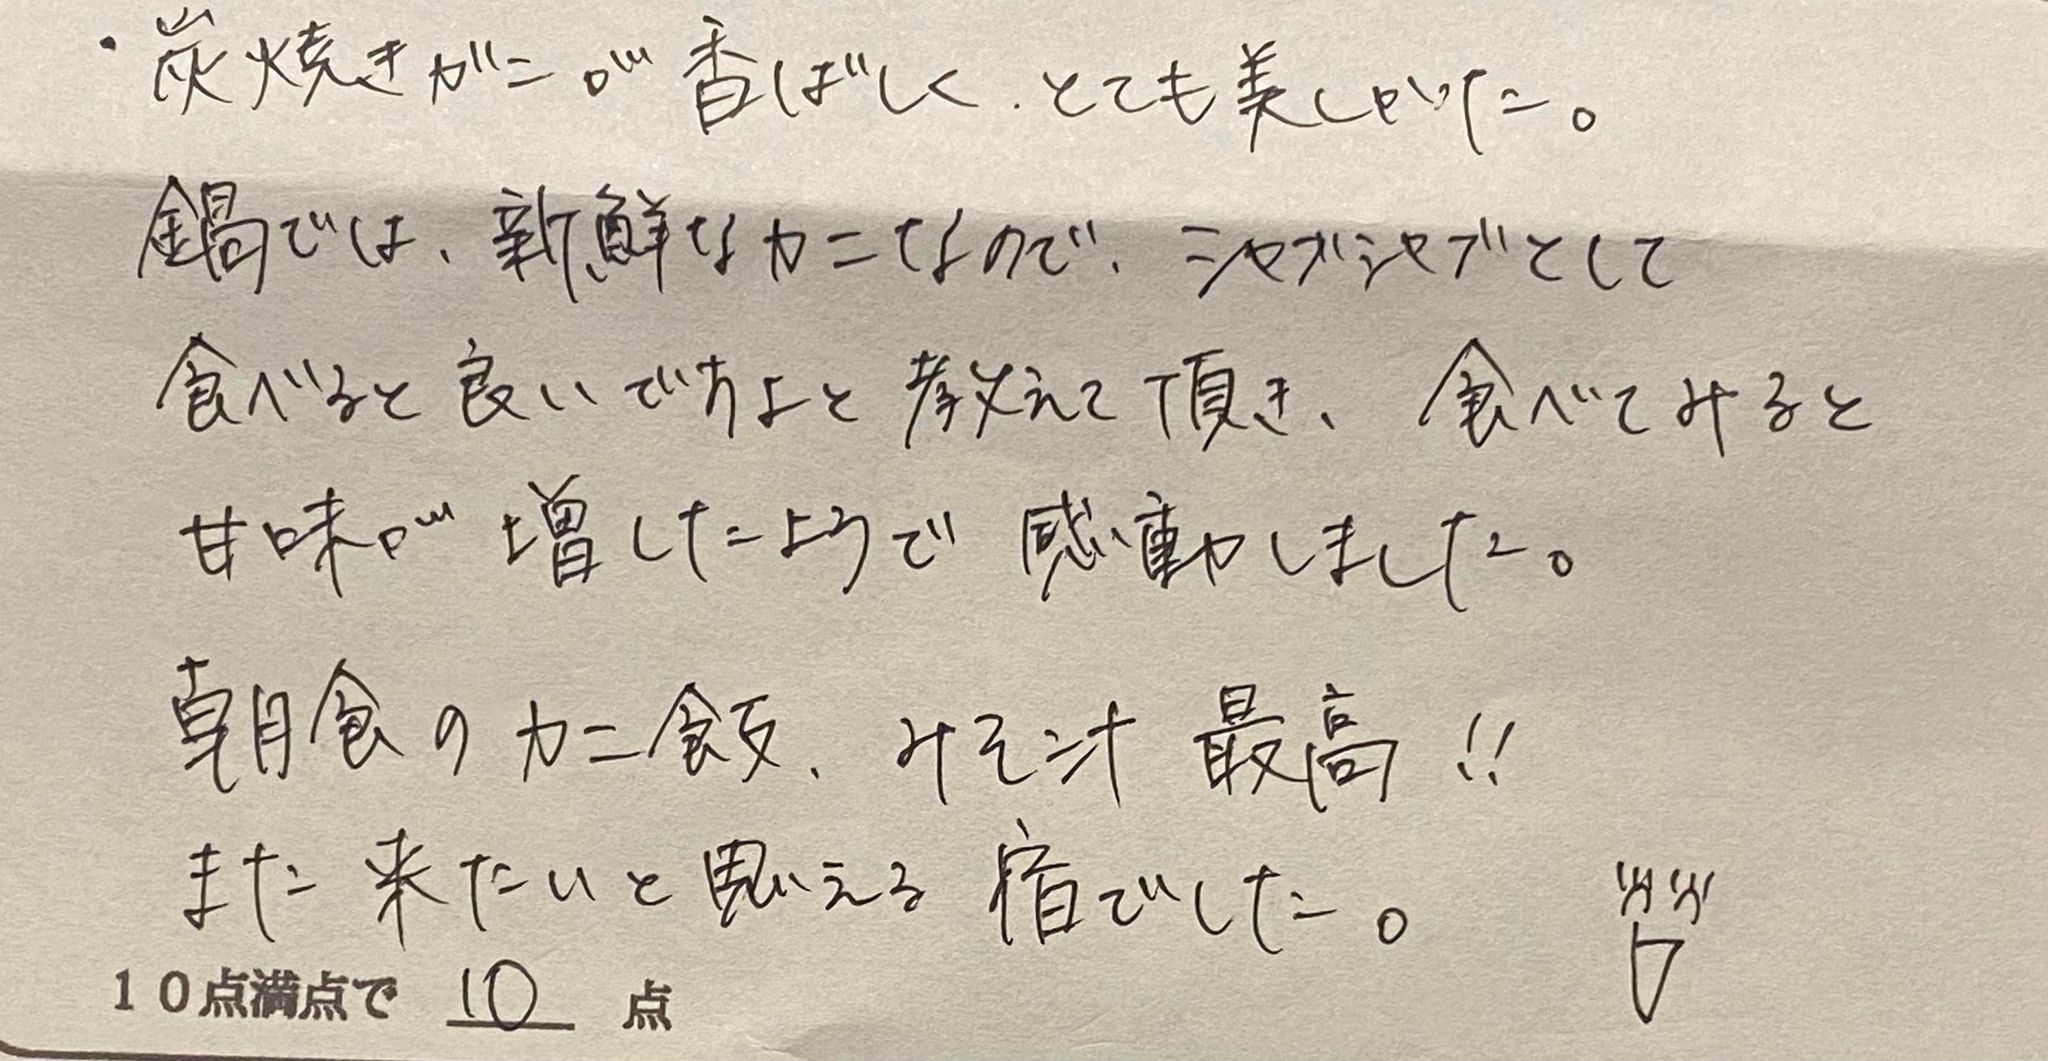 ・炭焼きガニが香ばしく、とても美しかった。
鍋では、新鮮なカニなので、シャブシャブとして
食べると良いですよと教えて頂き、食べてみると
甘味が増したようで感動しました。
朝食のカニ飯、みそ汁最高!!
また来たいと思える宿でした。
10点満点で 10 点